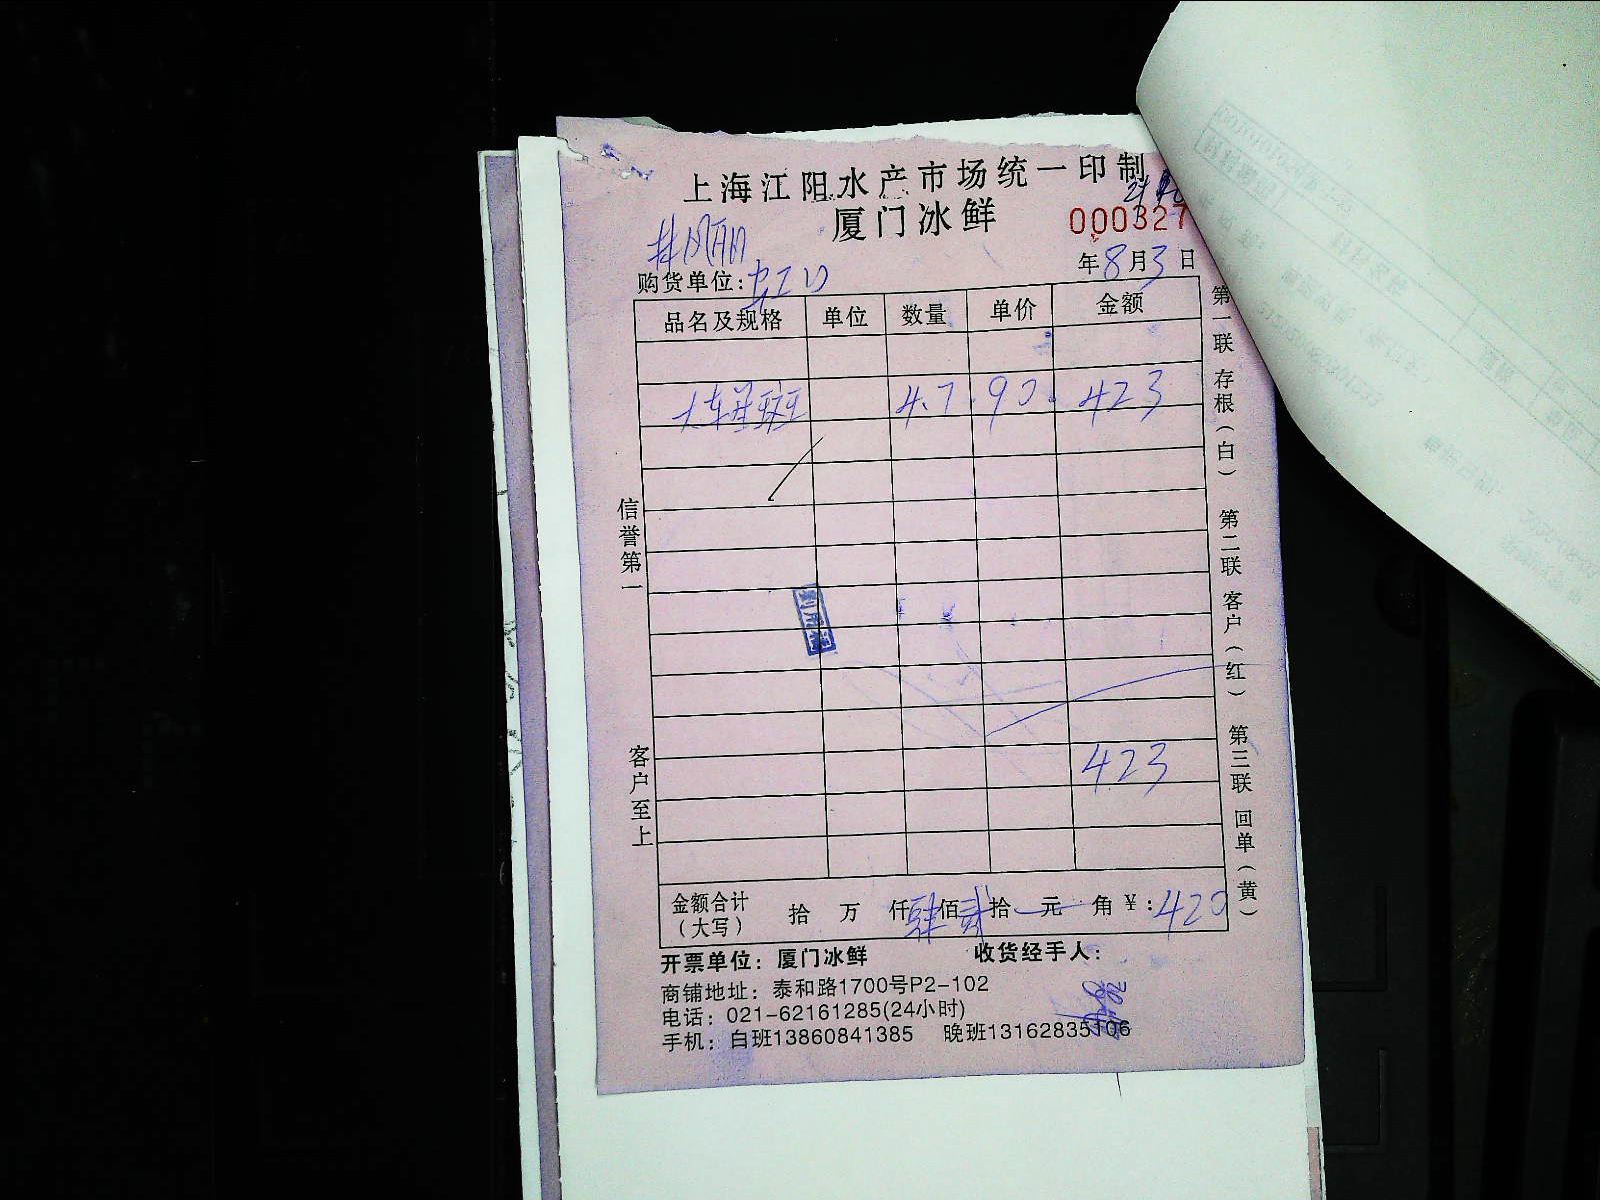 上海江阳水产市场统一印制
厦门冰鲜
000327
年8月3日
购货单位：虹口
品名及规格 单位 数量 单价 金额
大东星斑 4.7 90 423
423
金额合计（大写） 拾 万 仟肆佰贰拾 元 角 ¥：420
开票单位：厦门冰鲜 收货经手人：
商铺地址：泰和路1700号P2-102
电话：021-62161285(24小时)
手机：白班13860841385 晚班13162835106
信誉第一
客户至上
第一联 存根（白） 第二联 客户（红） 第三联 回单（黄）